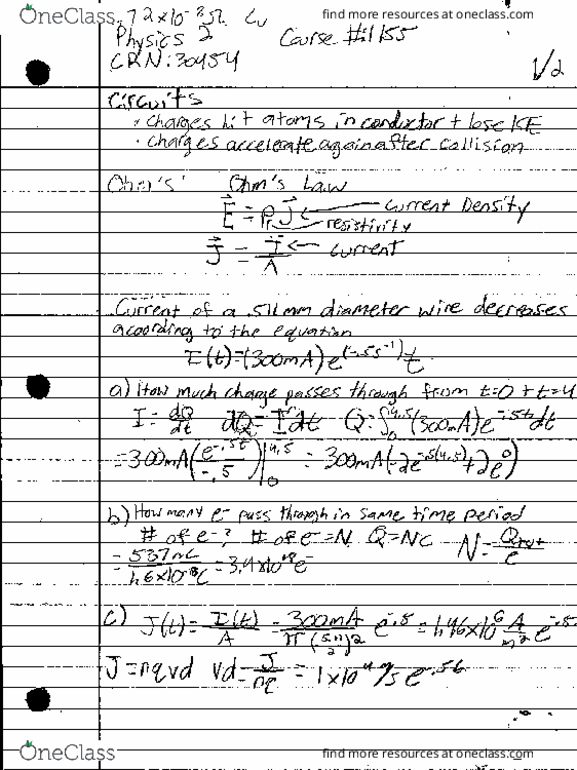 OneClass
find more resources at oneclass.com
1.72x10^-8 Ω Cu
Physics 2 Course #:1155
CRN:30454
1/2
Circuits
• charges hit atoms in conductor + lose KE
• charges accelerate again after collision
Ohm's' Ohm's Law
E = ρr J ← current Density
resistivity
J = I/A ← current
Current of a .511mm diameter wire decreases
acording to the equation
I(t)=(300mA)e^(-.5s^-1)t
a) How much charge passes through from t=0 + t=4
I = dQ/dt dQ = I dt Q=∫0^4.5 (300mA)e^-.5t dt
=300mA(e^-.5t/-.5)|0^4.5 = 300mA(-2e^-.5(4.5)+2e^0)
b) How many e- pass through in same time period
# of e-? # of e-=N Q=Ne N=Qtot/e
= 537mC/1.6x10^-19C = 3.4x10^18 e-
c) J(t)= I(t)/A = 300mA/π(.511/2)^2 e^-.5 = 1.46x10^6 A/m^2 e^-.5
J=nqvd vd=J/nq = 1x10^-4 m/s e^-.5t
OneClass
find more resources at oneclass.com